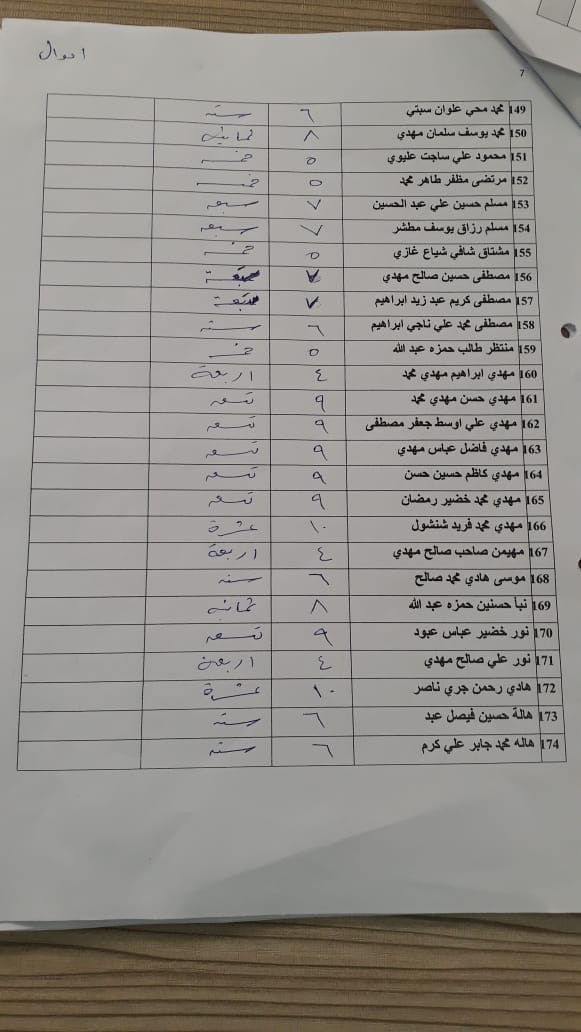 احوال
7
149 محمد محي علوان سبتي ٦ ستة
150 محمد يوسف سلمان مهدي ٨ ثمانية
151 محمود علي ساجت عليوي ٥ خمسة
152 مرتضى مظفر طاهر محمد ٥ خمسة
153 مسلم حسين علي عبد الحسين ٧ سبعه
154 مسلم رزاق يوسف مطشر ٧ سبعه
155 مشتاق شافي شياع غازي ٥ خمسة
156 مصطفى حسين صالح مهدي ٧ سبعة
157 مصطفى كريم عبد زيد ابراهيم ٧ سبعة
158 مصطفى محمد علي ناجي ابراهيم ٦ ستة
159 منتظر طالب حمزه عبد الله ٥ خمسة
160 مهدي ابراهيم مهدي محمد ٤ اربعة
161 مهدي حسن مهدي محمد ٩ تسعه
162 مهدي علي اوسط جعفر مصطفى ٩ تسعه
163 مهدي فاضل عباس مهدي ٩ تسعه
164 مهدي كاظم حسين حسن ٩ تسعه
165 مهدي محمد خضير رمضان ٩ تسعه
166 مهدي محمد فريد شنشول ١٠ عشرة
167 مهيمن صاحب صالح مهدي ٤ اربعة
168 موسى هادي محمد صالح ٦ ستة
169 نبأ حسنين حمزه عبد الله ٨ ثمانيه
170 نور خضير عباس عبود ٩ تسعه
171 نور علي صالح مهدي ٤ اربعة
172 هادي رحمن جري ناصر ١٠ عشرة
173 هالة حسين فيصل عبد ٦ ستة
174 هاله محمد جابر علي كرم ٦ ستة